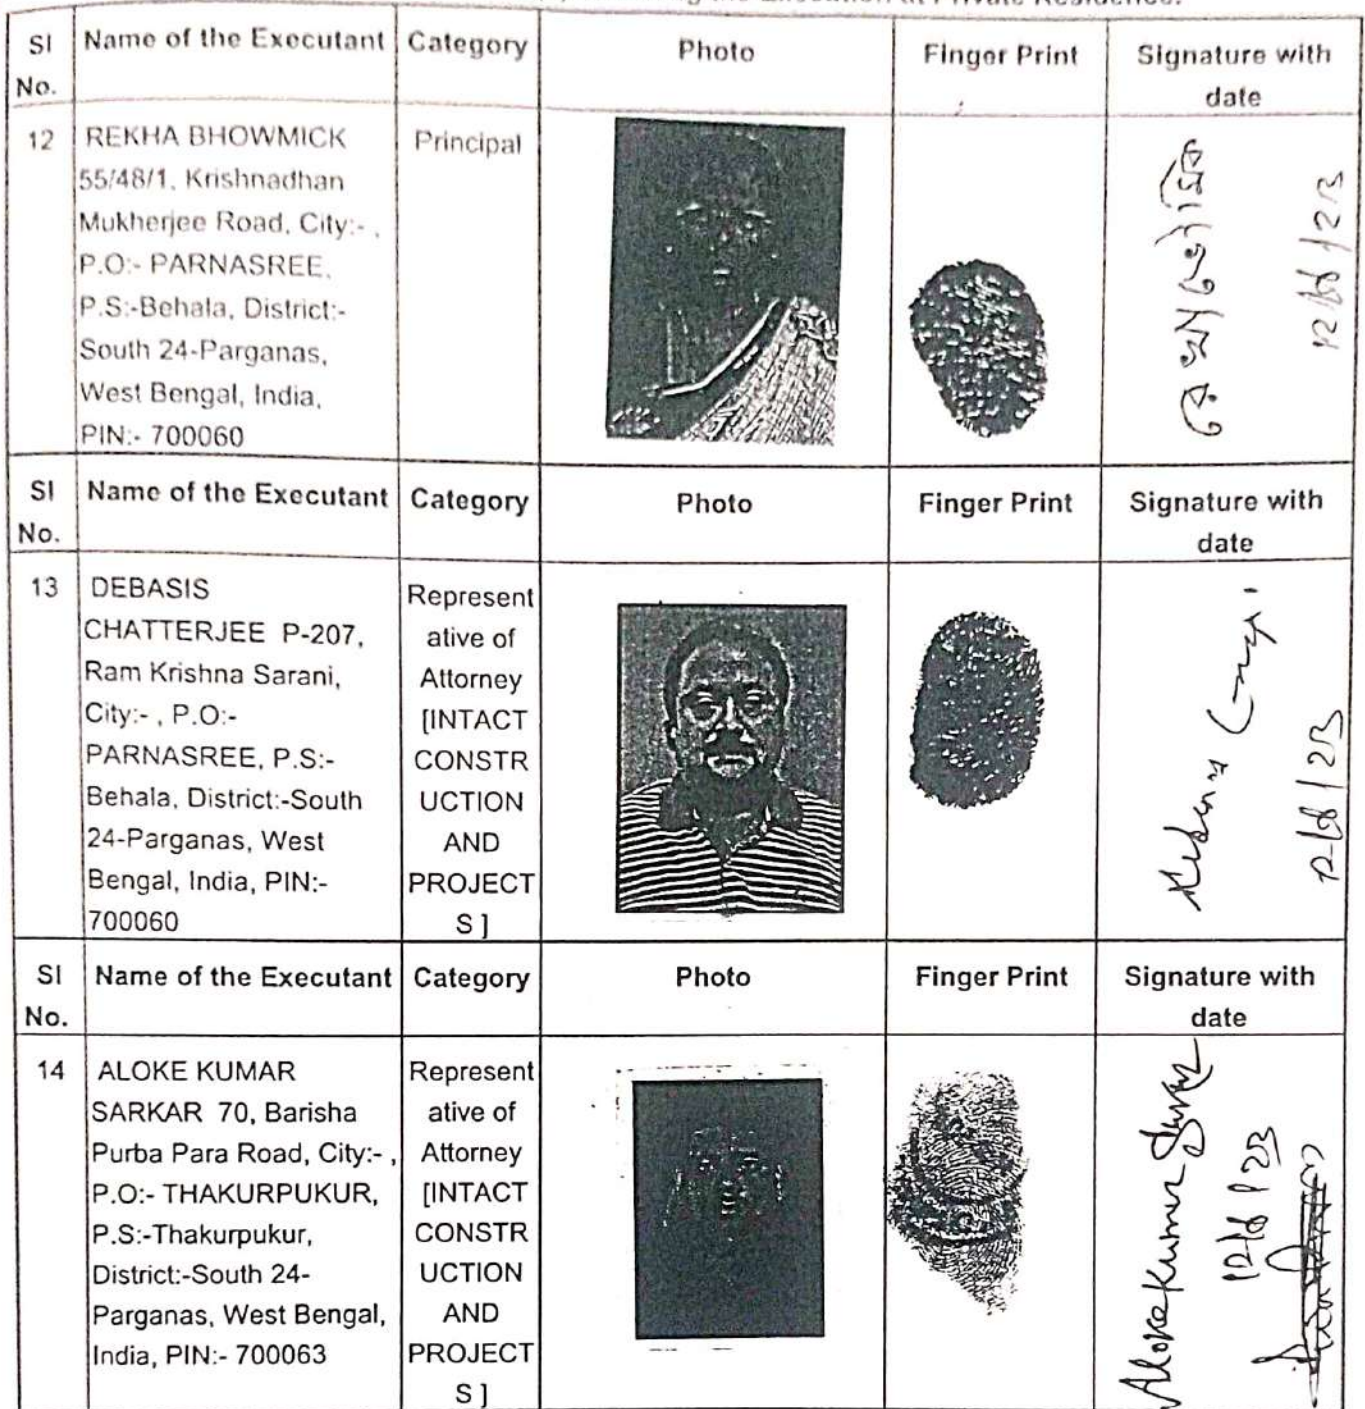 the Execution at Private Residence.
Sl No. Name of the Executant Category Photo Finger Print Signature with date
12 REKHA BHOWMICK Principal
55/48/1, Krishnadhan
Mukherjee Road, City:- ,
P.O:- PARNASREE,
P.S:-Behala, District:-
South 24-Parganas,
West Bengal, India,
PIN:- 700060
রেখা ভৌমিক
Sl No. Name of the Executant Category Photo Finger Print Signature with date
13 DEBASIS
CHATTERJEE P-207,
Ram Krishna Sarani,
City:- , P.O:-
PARNASREE, P.S:-
Behala, District:-South
24-Parganas, West
Bengal, India, PIN:-
700060
Represent
ative of
Attorney
[INTACT
CONSTR
UCTION
AND
PROJECT
S ]
Sl No. Name of the Executant Category Photo Finger Print Signature with date
14 ALOKE KUMAR
SARKAR 70, Barisha
Purba Para Road, City:- ,
P.O:- THAKURPUKUR,
P.S:-Thakurpukur,
District:-South 24-
Parganas, West Bengal,
India, PIN:- 700063
Represent
ative of
Attorney
[INTACT
CONSTR
UCTION
AND
PROJECT
S ]
Aloke Kumar Sarkar